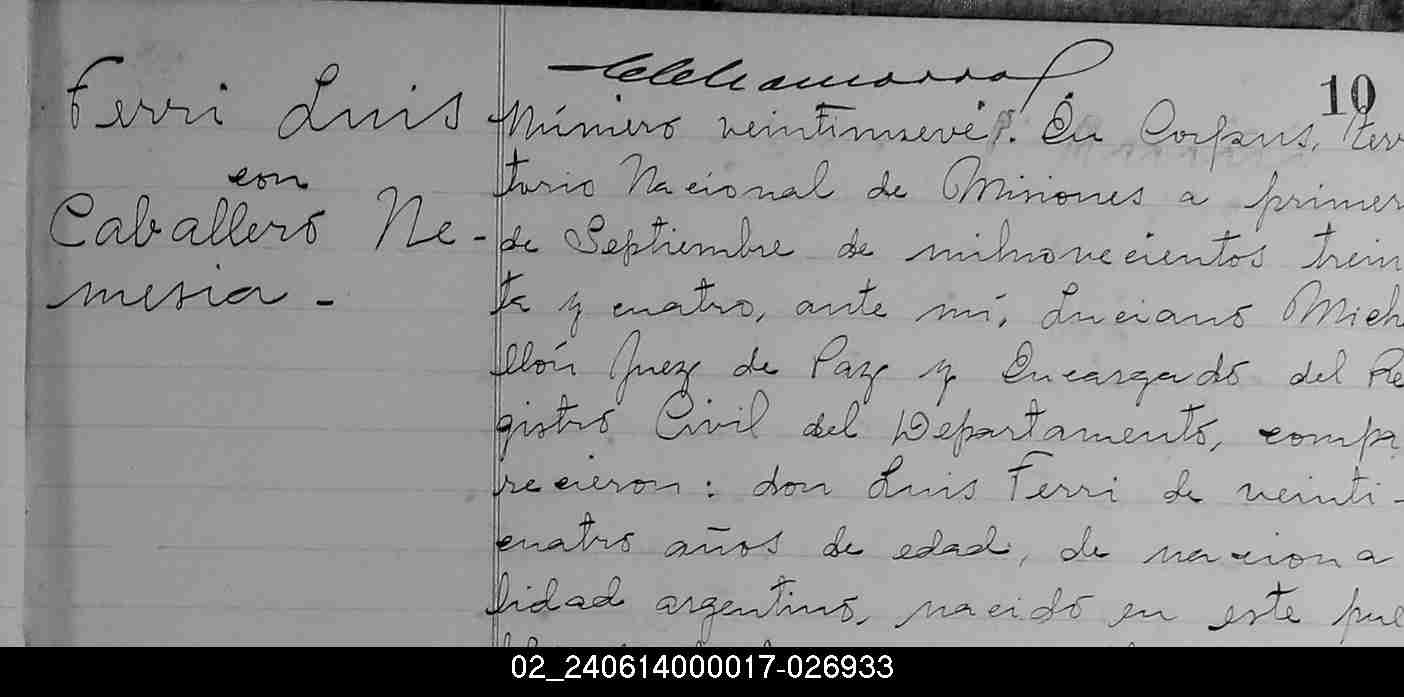 10
Ferri Luis
con
Caballero Ne-
mesia -
Número veintinueve. En Corpus, terr
torio Nacional de Misiones a primer
de Septiembre de milnovecientos trein
ta y cuatro, ante mí, Luciano Mich
llón Juez de Paz y Encargado del Re
gistro Civil del Departamento, compa
recieron: don Luis Ferri de veinti-
cuatro años de edad, de naciona
lidad argentino, nacido en este pue
02_240614000017-026933